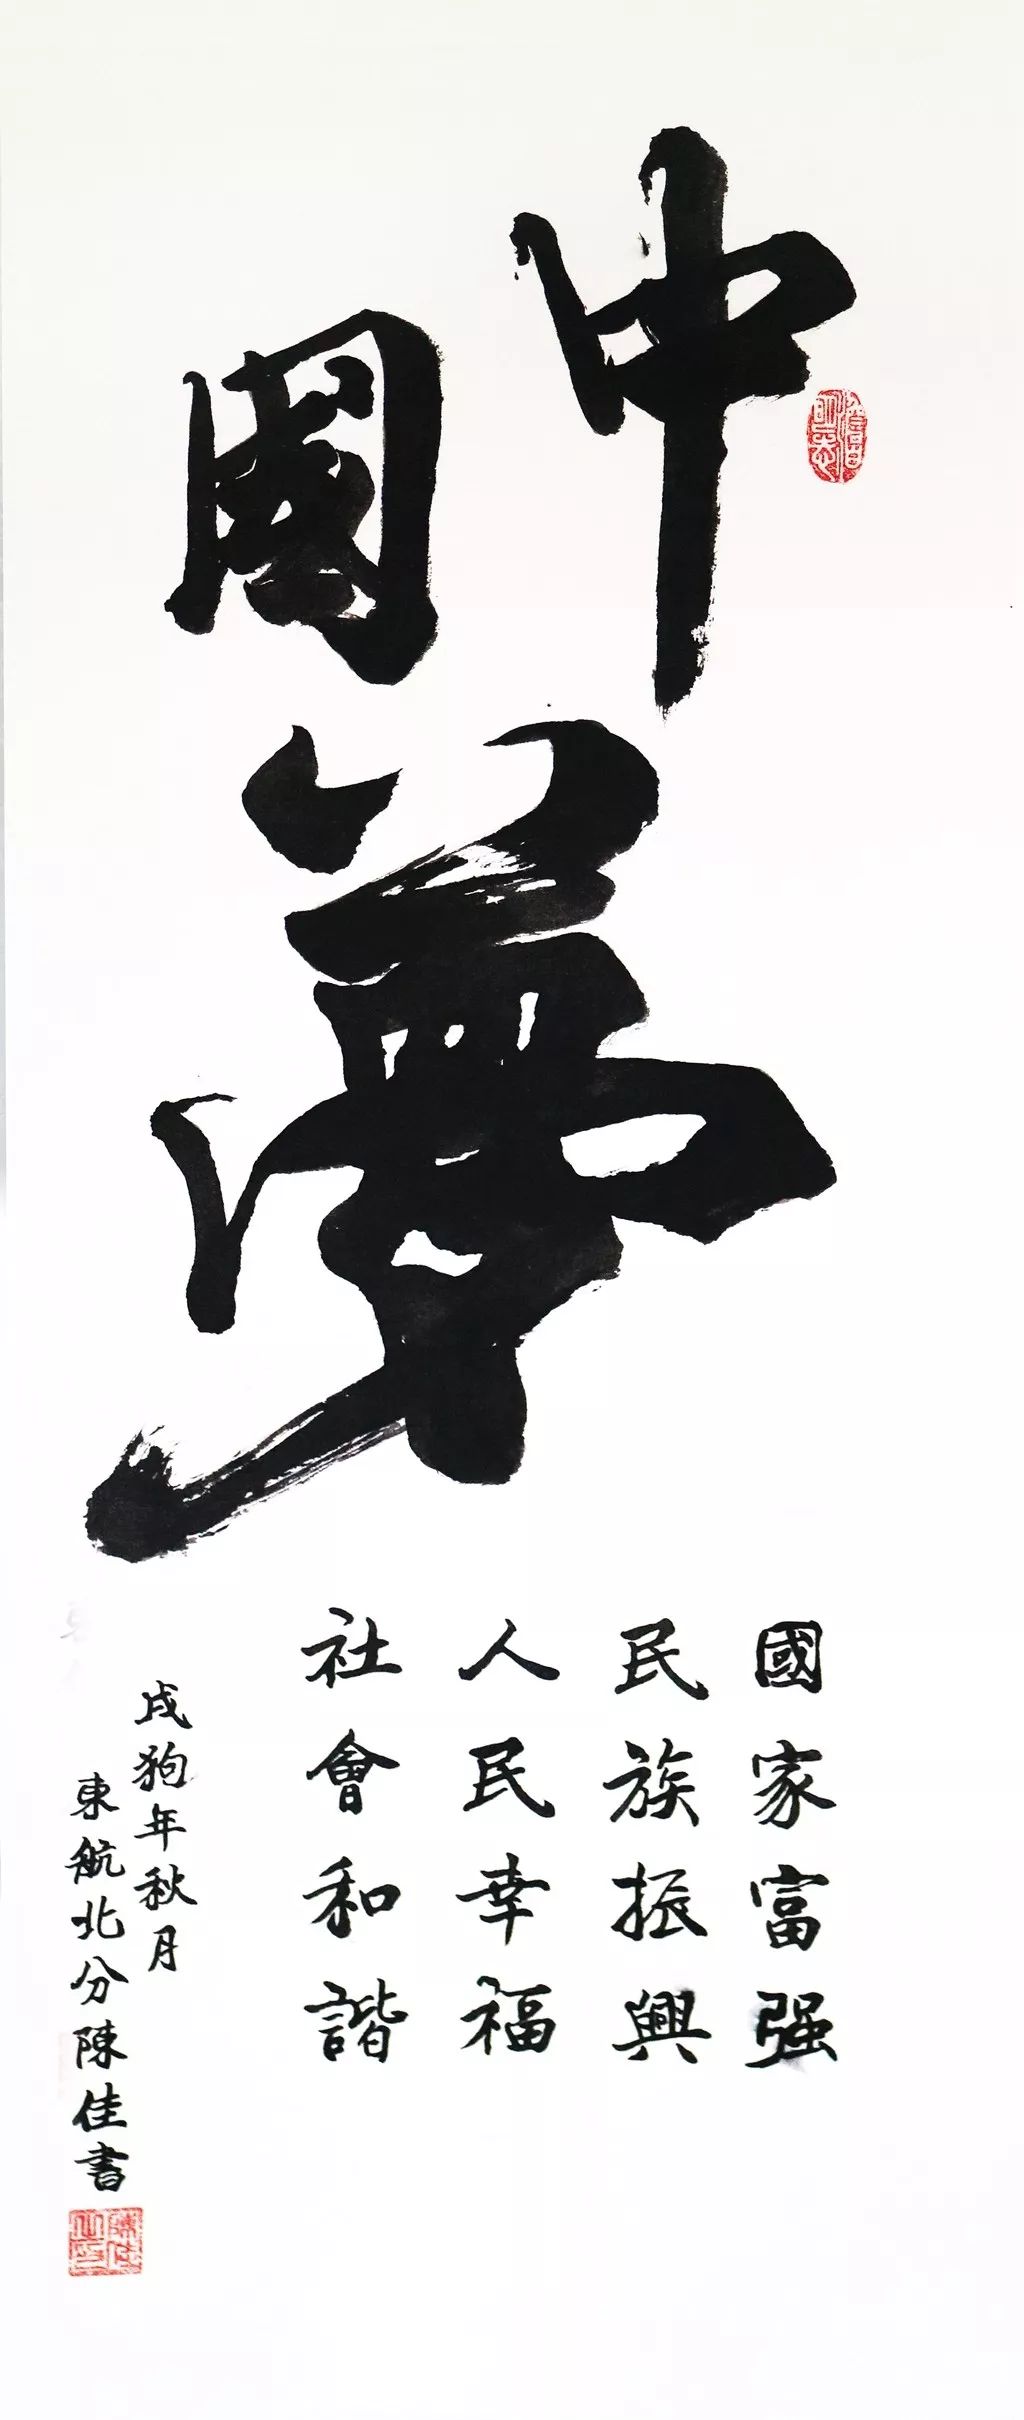 中國夢
國家富强
民族振興
人民幸福
社會和諧
戌狗年秋月
東航北分陳佳書
陳佳之印